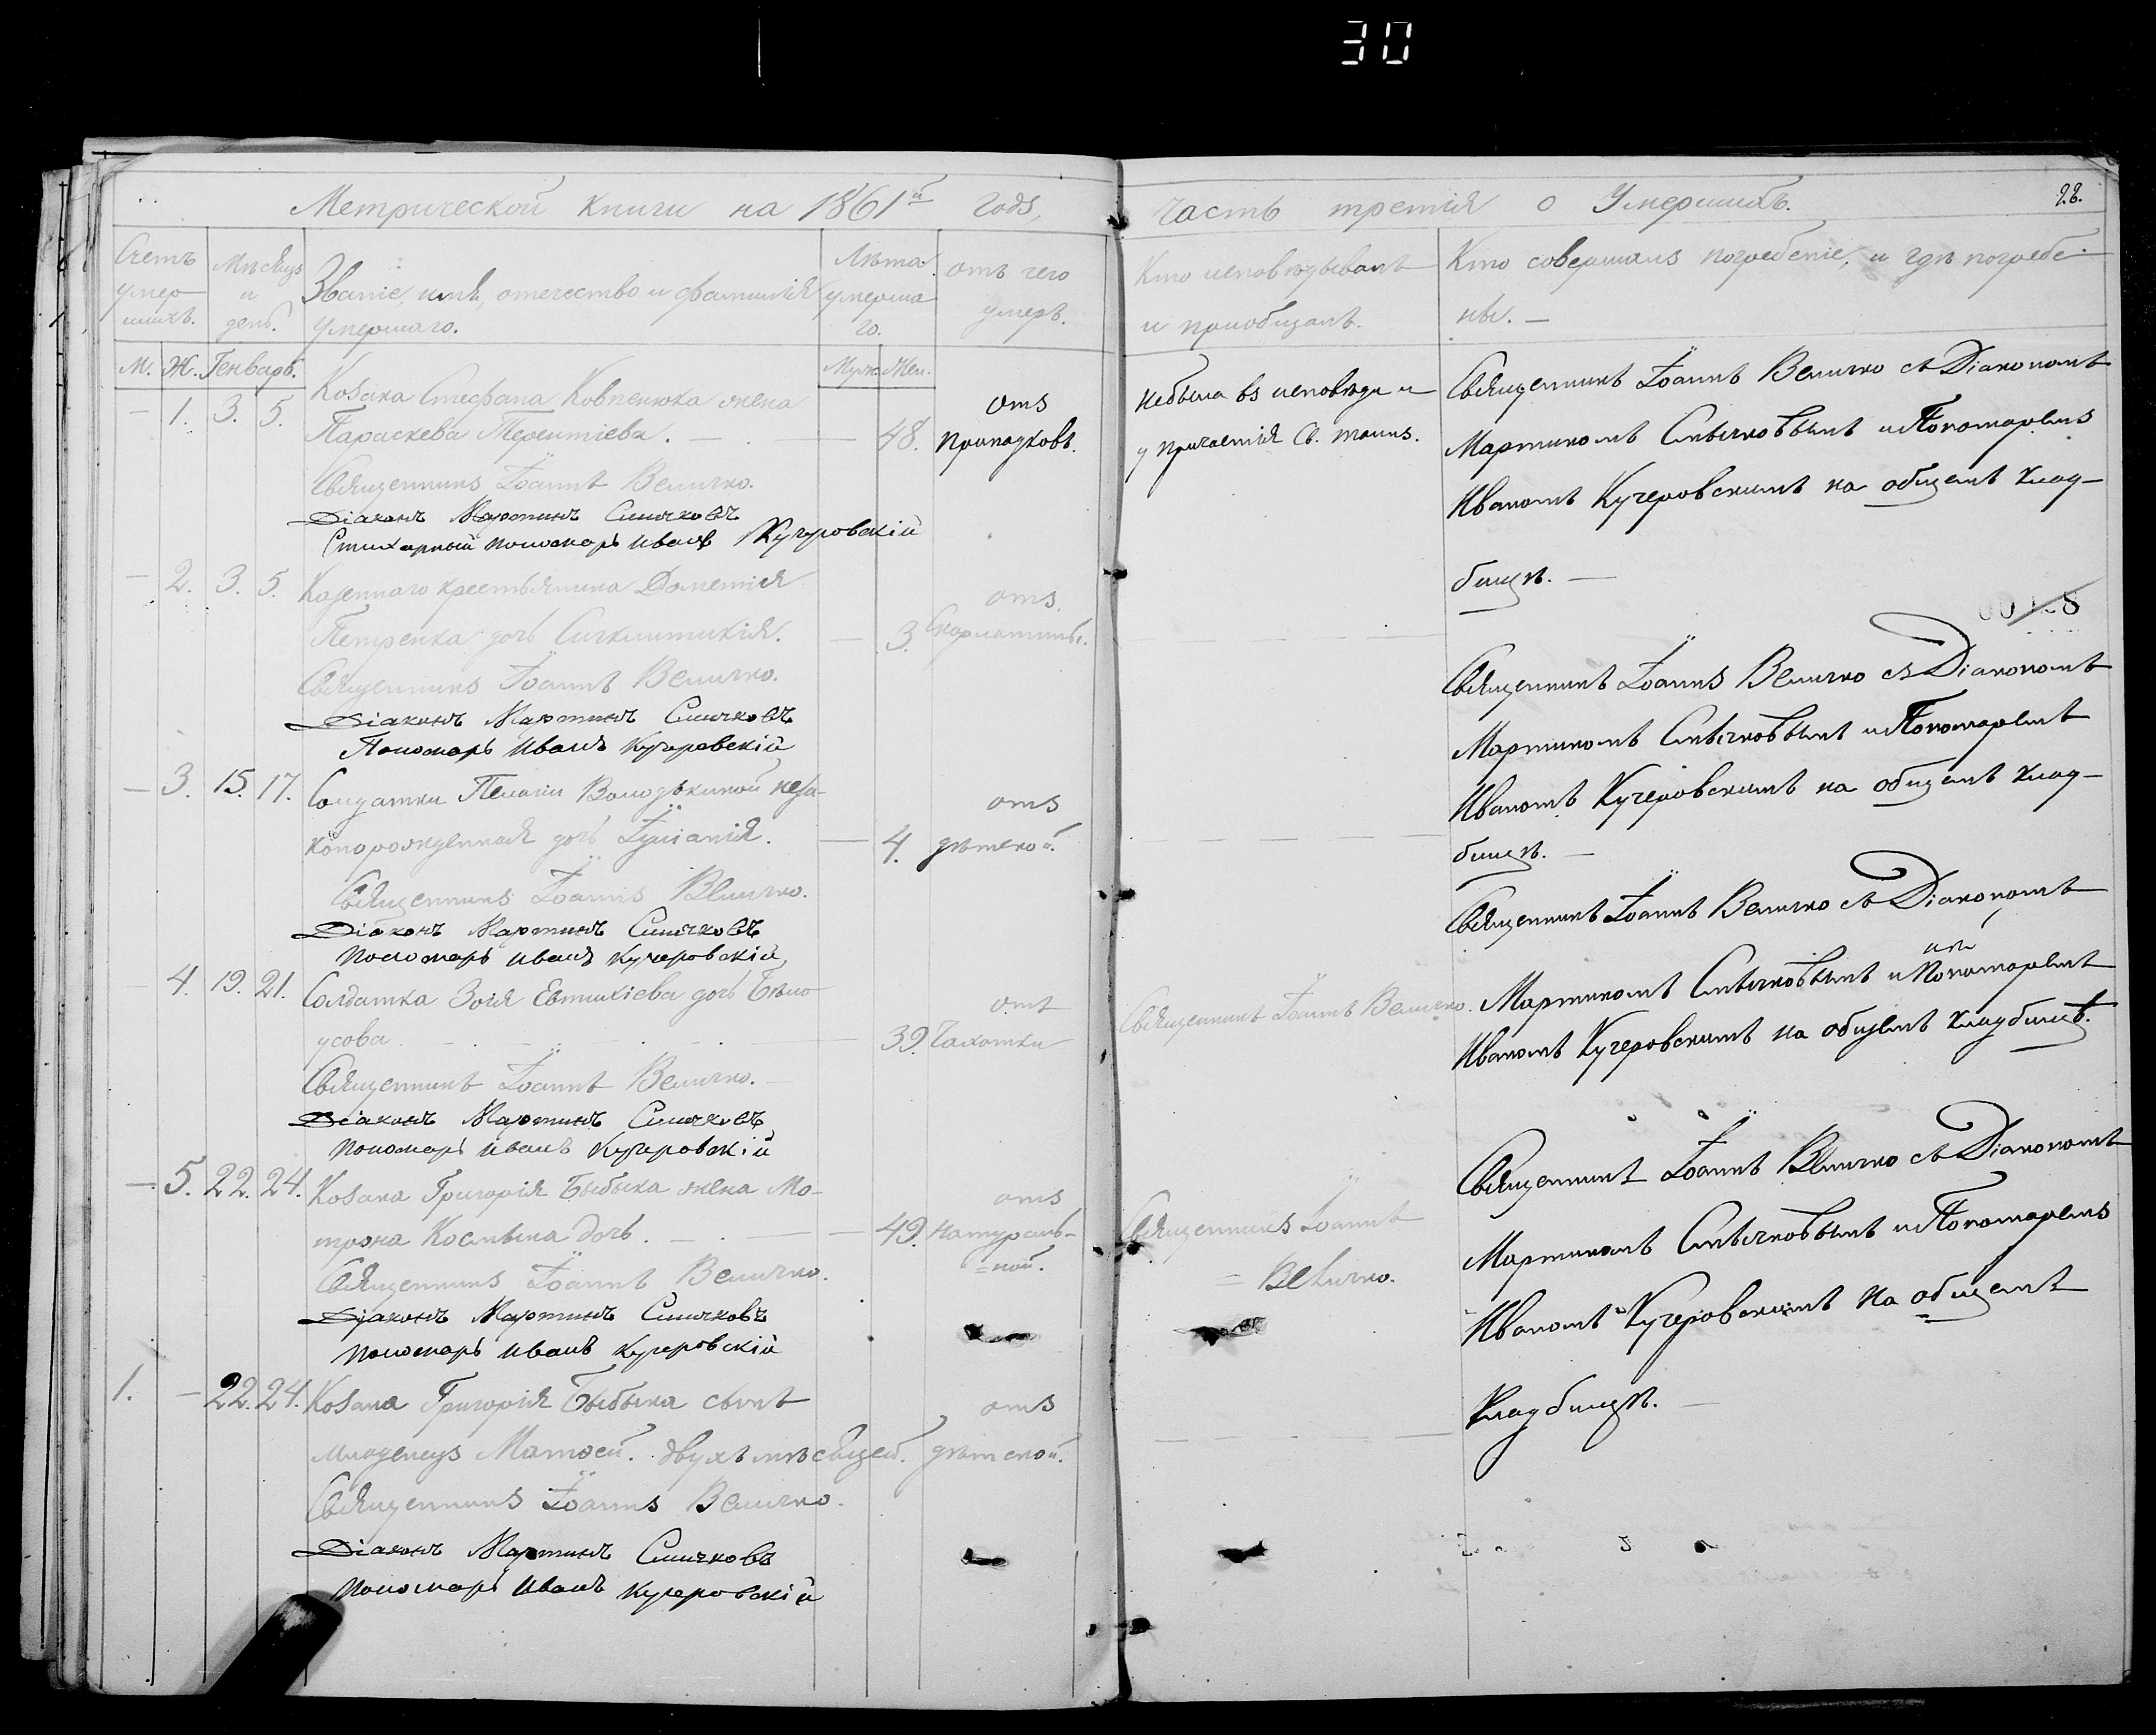 30
Метрической книги на 1861й годъ, часть третія о Умершихъ. 28.
Счетъ умер- шихъ.
Мѣсяцъ и день.
Званіе, имя, отечество и фамилія умершаго.
Лѣта умерша го.
отъ чего умеръ.
Кто исповѣдывалъ и пріобщалъ.
Кто совершалъ погребеніе, и гдѣ погребе- ны. —
М. Ж. Генварь. Муж. Жен.
— 1. 3. 5. Козака Стефана Ковпенюка жена
Параскева Терентіева. — 48. отъ припадковъ.
небыла въ исповѣди и
у причастія Св. таинъ.
Священникъ Іоаннъ Величко съ Діакономъ
Мартиномъ Смѣчковымъ и Пономаремъ
Иваномъ Кучеровскимъ на общемъ клад-
бищѣ. —
Священникъ Іоаннъ Величко.
Діаконъ Мартинъ Смѣчковъ
Стихарный пономарь Иванъ Кучеровскій
— 2. 3. 5. Казеннаго крестьянина Дометія
Петренка дочь Сигклитикія. — 3. отъ Скарлатины.
00128
Священникъ Іоаннъ Величко съ Діакономъ
Мартиномъ Смѣчковымъ и Пономаремъ
Иваномъ Кучеровскимъ на общемъ клад-
бищѣ. —
Священникъ Іоаннъ Величко.
Діаконъ Мартинъ Смѣчковъ
Пономарь Иванъ Кучеровскій
— 3. 15. 17. Солдатки Пелагіи Володькиной неза-
конорожденная дочь Іуліанія. — 4. отъ дѣтской.
Священникъ Іоаннъ Величко съ Діакономъ
Мартиномъ Смѣчковымъ и Пономаремъ
Иваномъ Кучеровскимъ на общемъ кладбищѣ.
Священникъ Іоаннъ Величко.
Діаконъ Мартинъ Смѣчковъ
Пономарь Иванъ Кучеровскій
— 4. 19. 21. Солдатка Зоія Евтихіева дочь Бѣло-
усова — 39. отъ Чахотки
Священникъ Іоаннъ Величко.
Священникъ Іоаннъ Величко.
Діаконъ Мартинъ Смѣчковъ
Пономарь Иванъ Кучеровскій
— 5. 22. 24. Козака Григорія Быбыка жена Мо-
трона Космина дочь. — 49. отъ натураль-
=ной.
Священникъ Іоаннъ
= Величко.
Священникъ Іоаннъ Величко съ Діакономъ
Мартиномъ Смѣчковымъ и Пономаремъ
Иваномъ Кучеровскимъ на общемъ
кладбищѣ. —
Священникъ Іоаннъ Величко.
Діаконъ Мартинъ Смѣчковъ
Пономарь Иванъ Кучеровскій
1. — 22. 24. Козака Григорія Быбыка сынъ
младенецъ Матөей. двухъ мѣсяцей. отъ дѣтской.
Священникъ Іоаннъ Величко.
Діаконъ Мартинъ Смѣчковъ
Пономарь Иванъ Кучеровскій